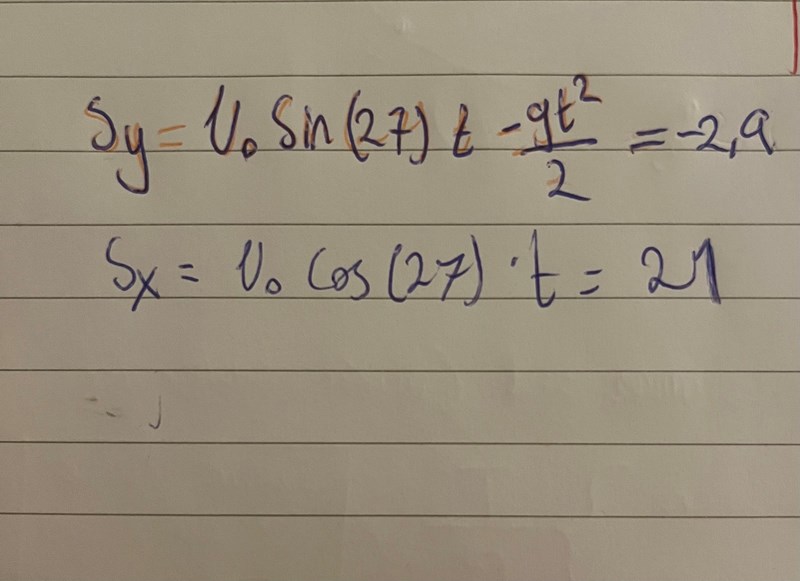 Sy = V₀ Sin(27) t - gt²/2 = -2,9
Sx = V₀ Cos(27) · t = 21